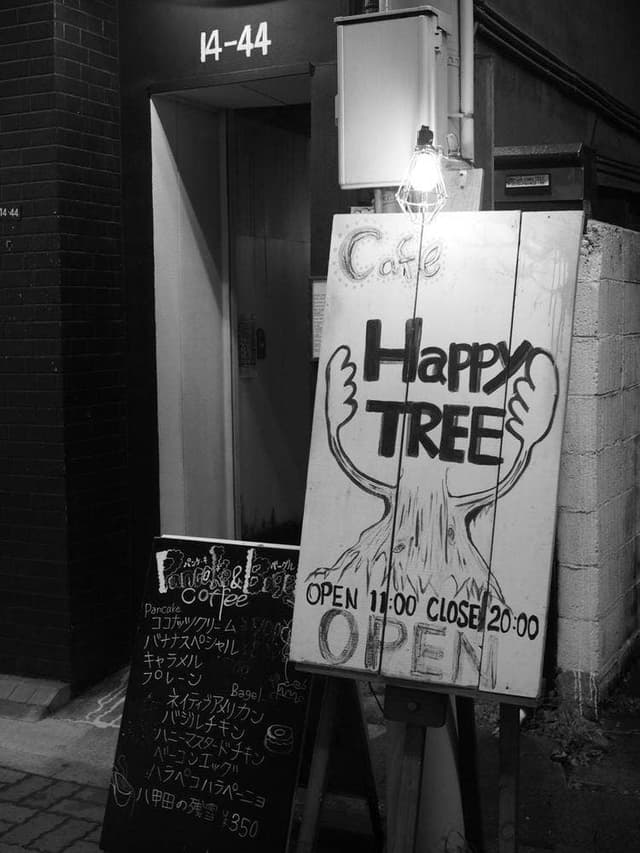 14-44
14-44
Cafe
Happy
TREE
OPEN 11:00 CLOSE 20:00
OPEN
パンケーキ
ベーグル
Pancake & Bagel
Coffee
Pancake
ココナッツクリーム
バナナスペシャル
キャラメル
プレーン
Bagel
ネイティブアメリカン
バジルチキン
ハニーマスタードチキン
ベーコンエッグ
ハラペコハラペーニョ
八甲田の残雪 ¥350